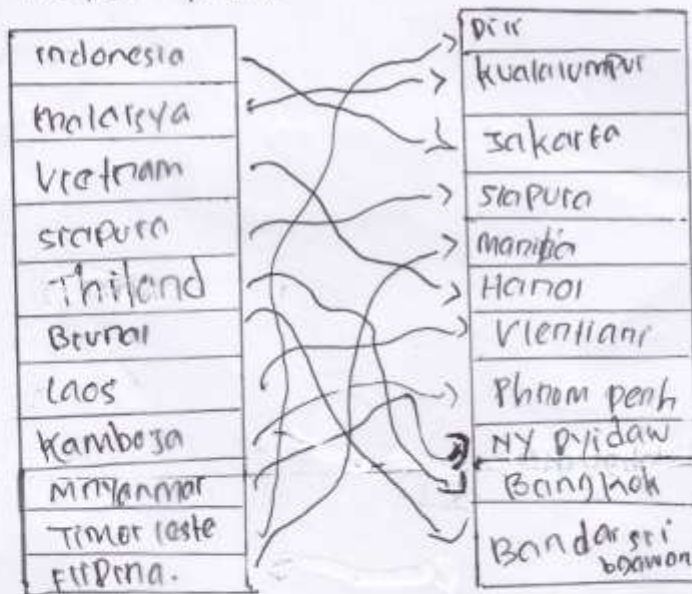 Indonesia
Malaisya
Vietnam
siapura
Thiland
Brunai
Laos
Kamboja
Mnyanmar
Timor leste
Filipina.
Dili
kualalumpur
Jakarta
siapura
manila
Hanoi
Vientiani
Phnom penh
NY Pyidaw
Bangkok
Bandar sri
bgawan